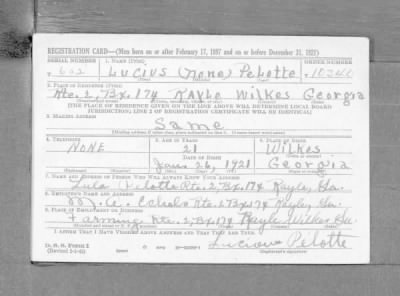 REGISTRATION CARD—(Men born on or after February 17, 1897 and on or before December 31, 1921)
SERIAL NUMBER 1. NAME (Print) ORDER NUMBER
LUCIUS (none) Pelotte
2. PLACE OF RESIDENCE (Print)
Rte. 2, Bx. 174 RAYLE Wilkes Georgia
[THE PLACE OF RESIDENCE GIVEN ON THE LINE ABOVE WILL DETERMINE LOCAL BOARD
JURISDICTION; LINE 2 OF REGISTRATION CERTIFICATE WILL BE IDENTICAL]
3. MAILING ADDRESS
Same
4. TELEPHONE 5. AGE IN YEARS 6. PLACE OF BIRTH
NONE 21 Wilkes
DATE OF BIRTH
Jan. 26, 1921 Georgia
7. NAME AND ADDRESS OF PERSON WHO WILL ALWAYS KNOW YOUR ADDRESS
Lula Pelotte Rte. 2, Bx. 174 Rayle, Ga.
8. EMPLOYER'S NAME AND ADDRESS
Rte. 2 Bx 174 Rayle, Ga.
9. PLACE OF EMPLOYMENT OR BUSINESS
Farming Rte. 2, Bx 174 Rayle Wilkes Ga.
I AFFIRM THAT I HAVE VERIFIED ABOVE ANSWERS AND THAT THEY ARE TRUE.
D. S. S. FORM 1
Pelotte